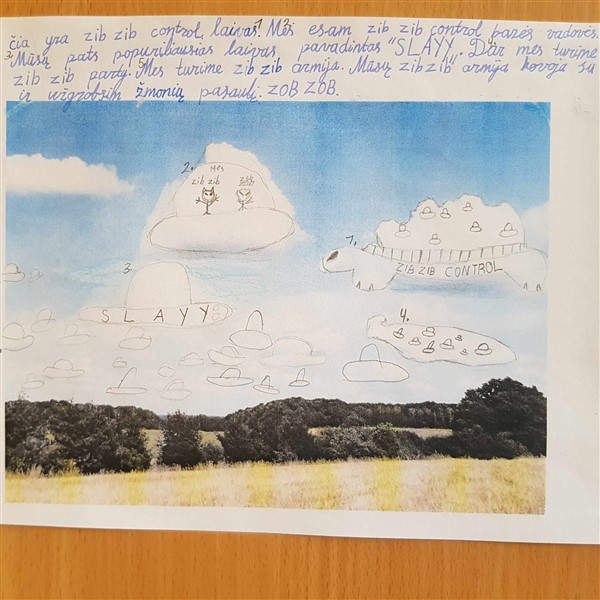 čia yra zib zib control laivas.¹ Mes² esam zib zib control bazės vadovės.
³Mūsų pats popuriliausias laivas pavadintas "SLAYY". Dar mes turime
zib zib party.⁴ Mes⁵ turime zib zib armija. Mūsų zib zib armija kovoja su
ir užgrobsim žmonių pasaulį. ZOB ZOB.
2. MES
zib zib
1.
ZIB ZIB CONTROL
3.
SLAYY
4.